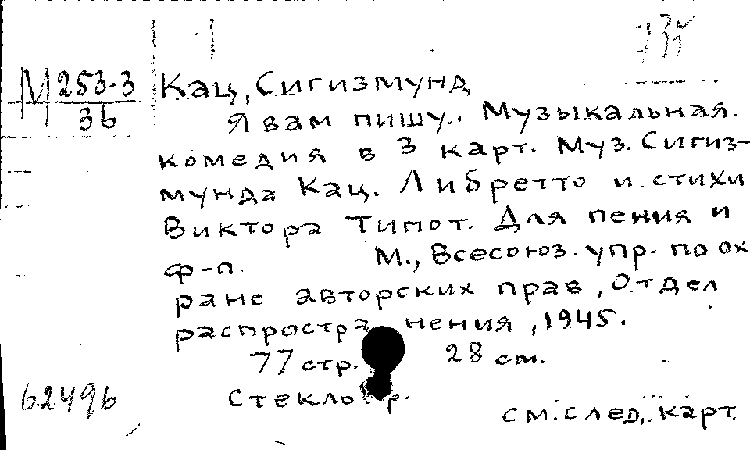 735
М 253-3
36
Кац, Сигизмунд
Я вам пишу.. Музыкальная.
комедия в 3 карт. Муз. Сигиз-
мунда Кац. Либретто и стихи
Виктора Типот. Для пения и
ф-п. М., Всесоюз. упр. по ох
ране авторских прав, Отдел
распространения, 1945.
77 стр. 28 см.
62496
Стеклогр.
см. след. карт.